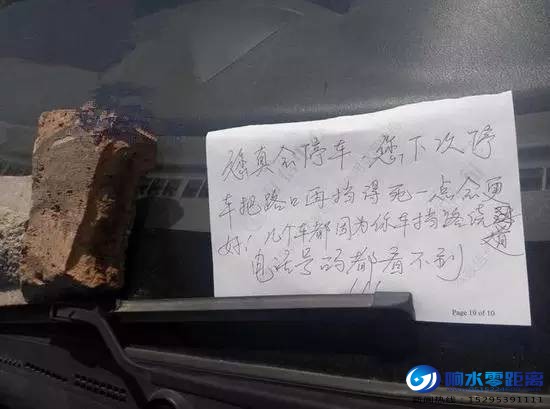 您真会停车，您下次停
车把路口再挡得死一点会更
好！几个车都因为你车挡路绕道
电话号码都看不到
!!!
Page 19 of 10
响水零距离
新闻热线：15295391111